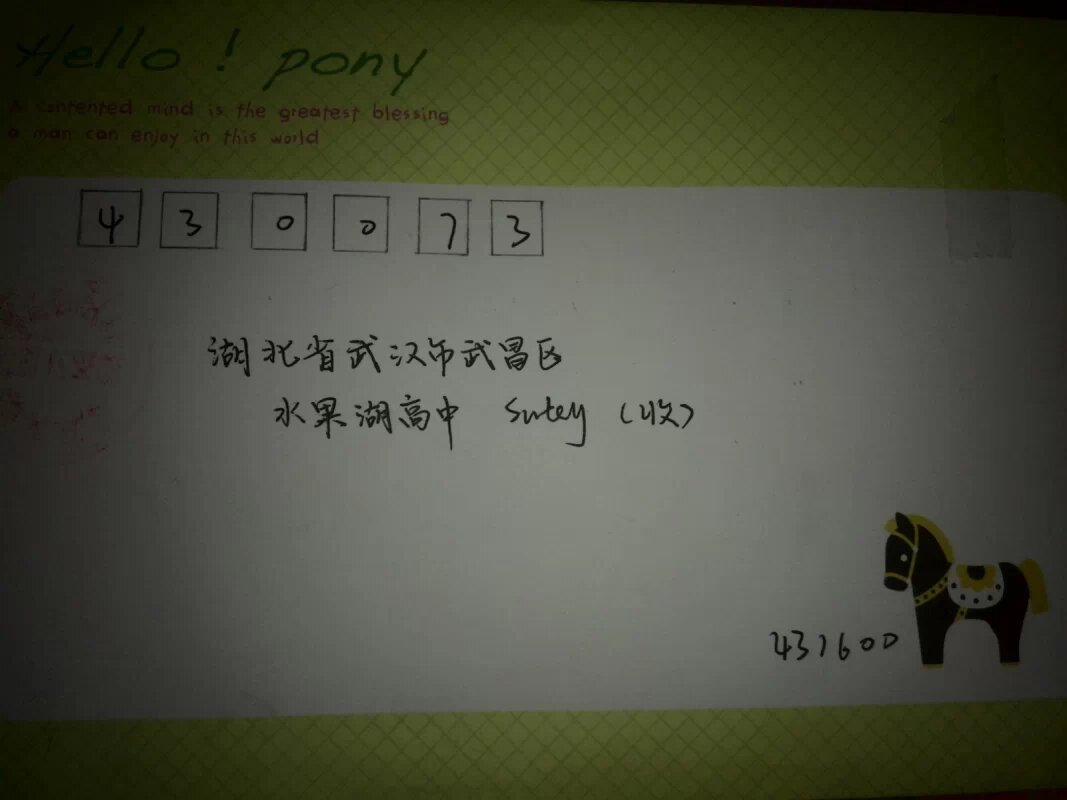 Hello ! pony
A contented mind is the greatest blessing
a man can enjoy in this world
4 3 0 0 7 3
湖北省武汉市武昌区
水果湖高中 Sutey (收)
431600